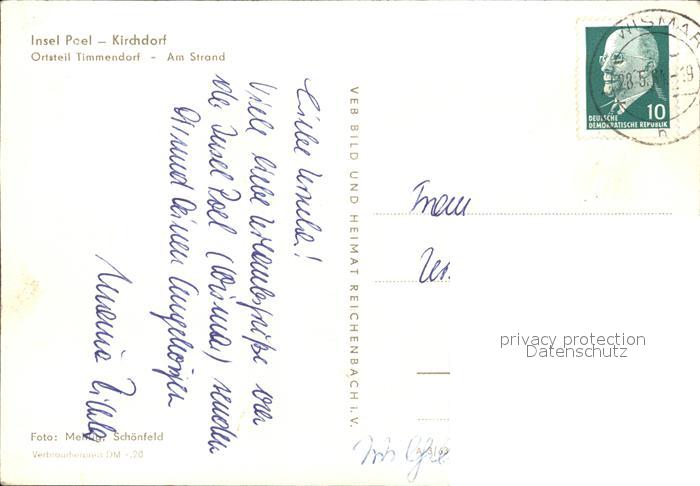 Insel Poel – Kirchdorf
Ortsteil Timmendorf - Am Strand
Liebe Ursula!
Viele liebe Urlaubsgrüße von
der Insel Poel (Wismar) senden
Dir und Deinen Angehörigen
VEB BILD UND HEIMAT REICHENBACH i. V.
WISMAR
28.5.
10
DEUTSCHE
DEMOKRATISCHE REPUBLIK
Frau
privacy protection
Datenschutz
Foto: Schönfeld
Verbraucherpreis DM -,20